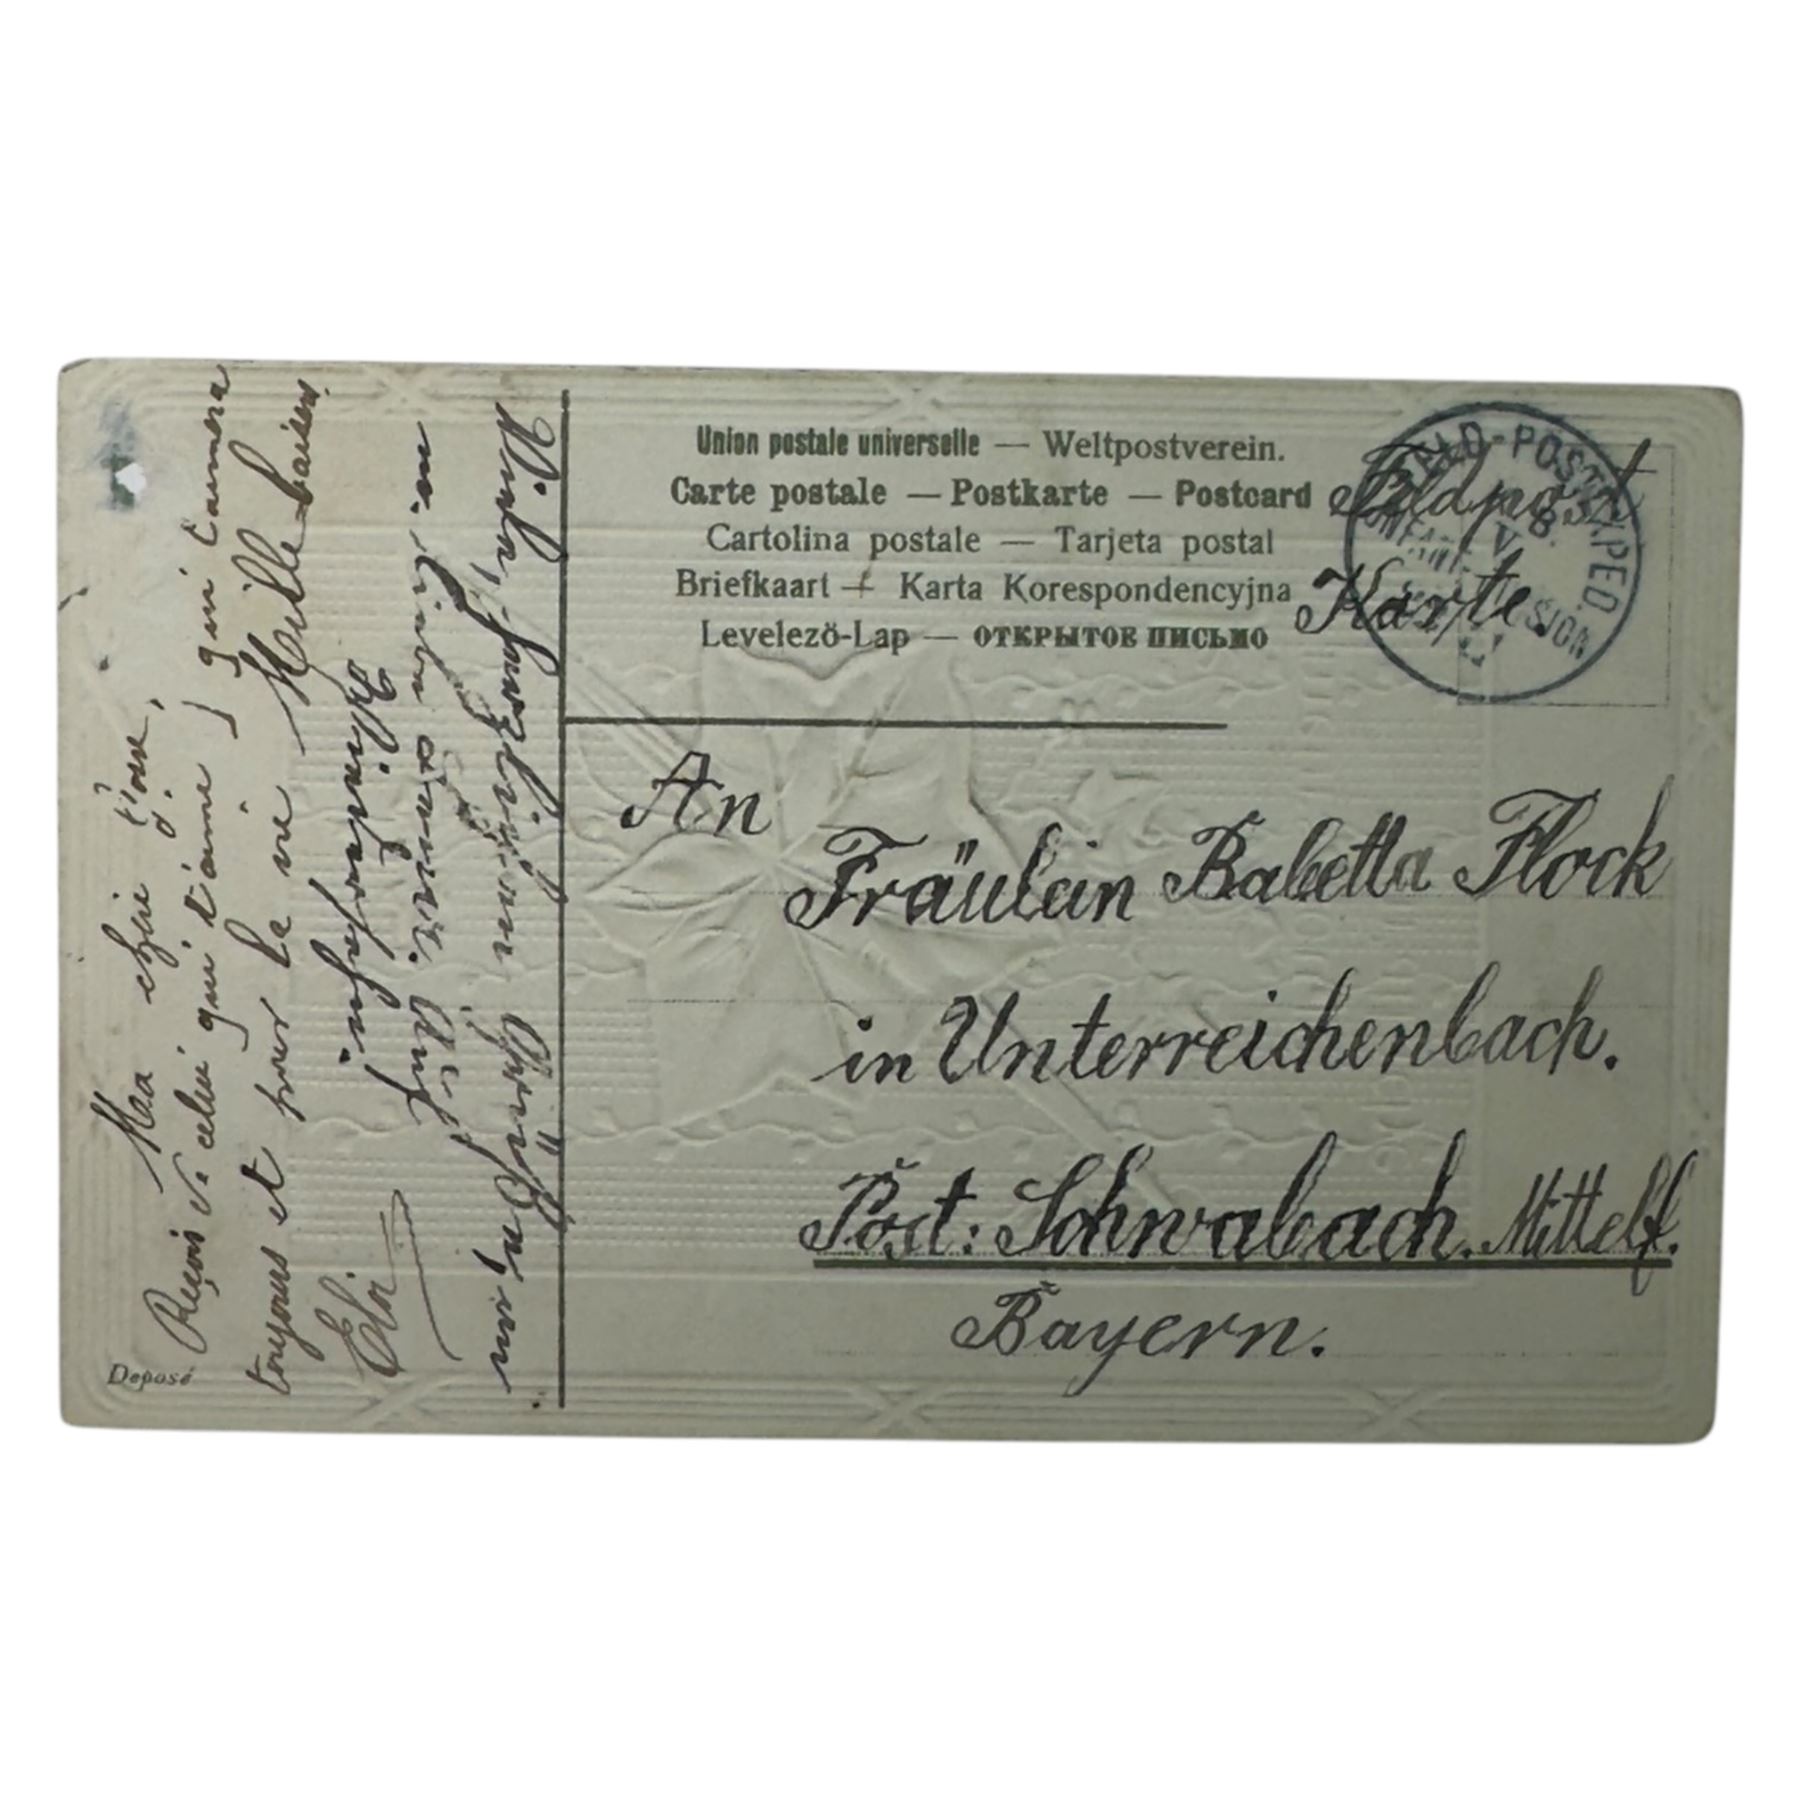 Union postale universelle — Weltpostverein.
Carte postale — Postkarte — Postcard
Cartolina postale — Tarjeta postal
Briefkaart — Karta Korespondencyjna
Levelező-Lap — ОТКРЫТОЕ ПИСЬМО
Feldpost
Karte.
FELD-POSTEXPED.
An
Fräulein Babetta Flock
in Unterreichenbach.
Post: Schwabach. Mittelf.
Bayern.
Ma chère
Reçois de celui qui t'aime, qui t'aimera
toujours et pour la vie Mille baisers
Viele, herzlichen Grüße, von
m. Auf
Wiedersehn.
Deposé